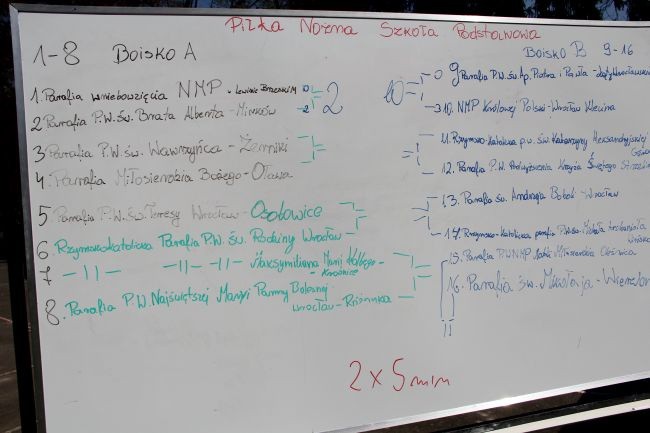 Piłka Nożna Szkoła Podstawowa
1-8 Boisko A
1. Parafia wniebowzięcia NMP - Lewin Brzeski 0
2 Parafia P.W. Św. Brata Alberta - 2
2
3 Parafia P.W. Św. Wawrzyńca - Żerniki
4. Parafia Miłosierdzia Bożego - Oława
5 Parafia P.W. Św. Teresy Wrocław - Osobowice
6. Rzymskokatolicka Parafia P.W. Św. Rodziny Wrocław
7 - 11 - - 11 - 11 - Maksymiliana Marii Kolbego -
8. Parafia P.W. Najświętszej Maryi Panny Bolesnej
Wrocław - Różanka
Boisko B 9-16
0 9 Parafia P.W. Św. Ap. Piotra i Pawła -
10
3 10. NMP Królowej Polski - Wrocław Klecina
11. Rzymsko-Katolicka p.w. Św Katarzyny Aleksandryjskiej
12. Parafia P.W. Podwyższenia Krzyża Świętego
13. Parafia Św. Andrzeja Boboli - Wrocław
14. Rzymsko-Katolicka parafia P.W. Św. Michała Archanioła
15. Parafia P.W NMP Matki Miłosierdzia Oleśnica
16. Parafia Św. Mikołaja -
2 x 5 min